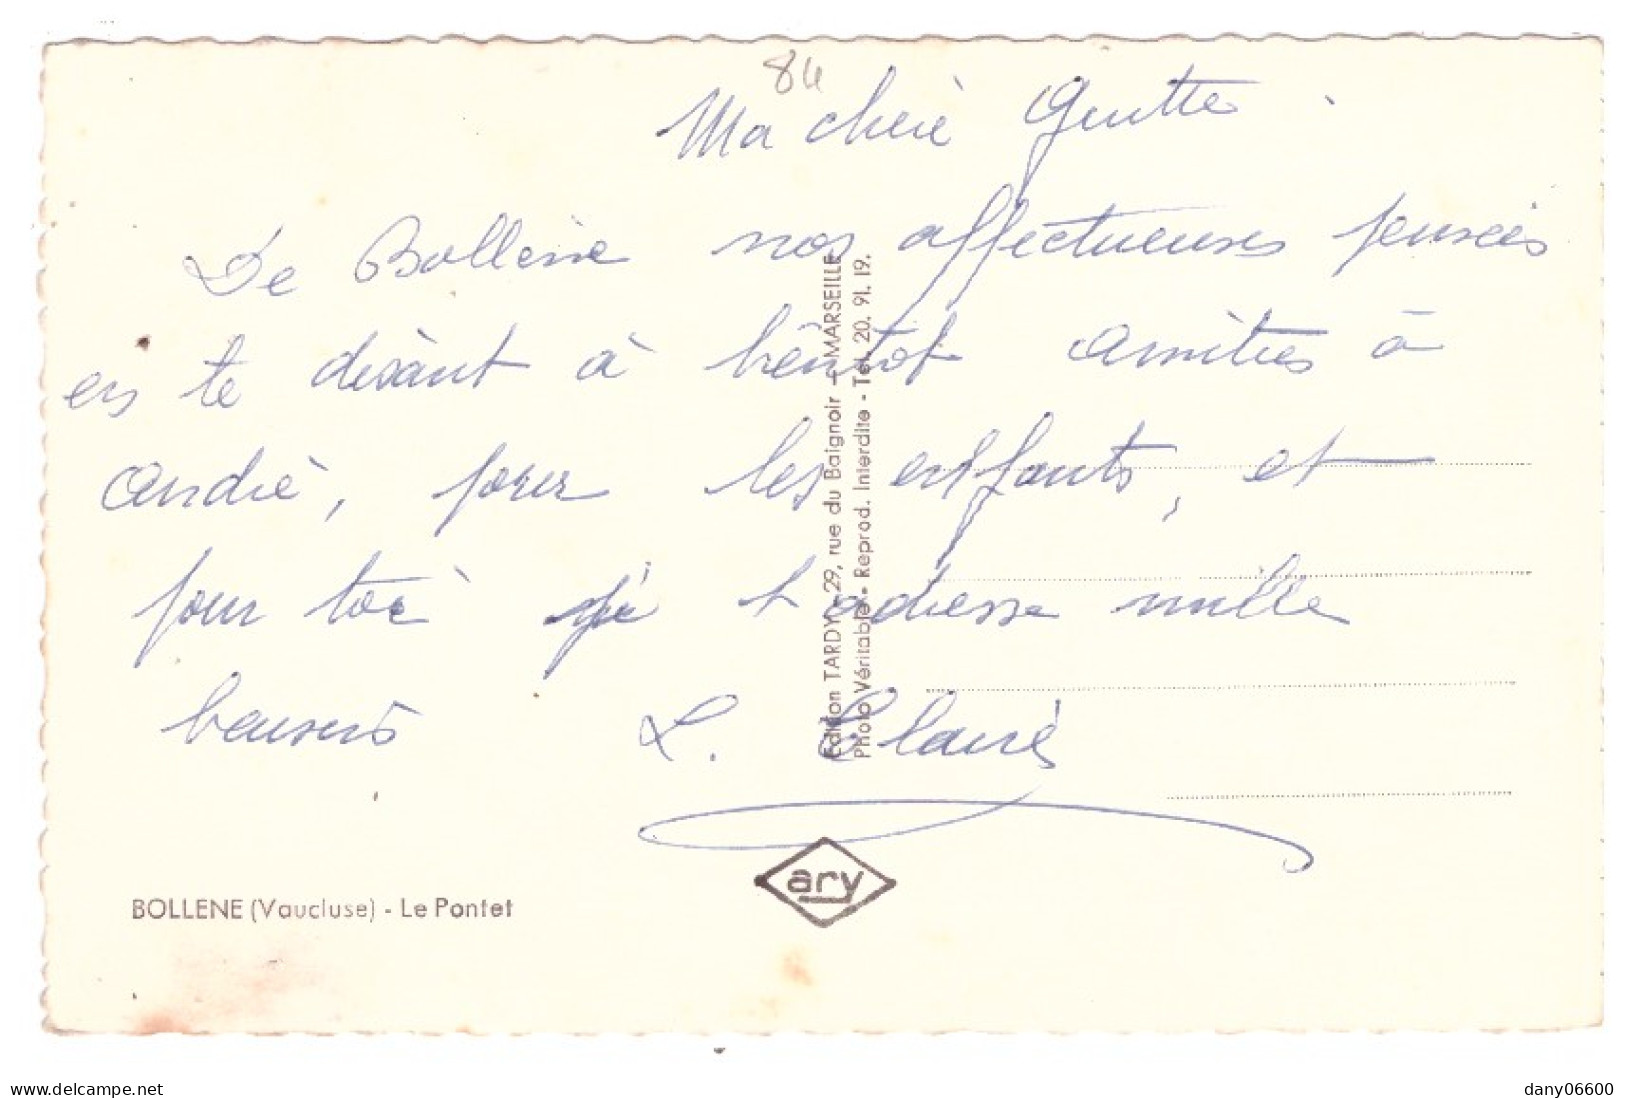 84
Ma chère
De Bollène nos affectueuses pensées
en te disant à bêntot amities à
andré, pour les enfants, et
pour toi qé t adresse mille
beusers L. Claire
Edition TARDY - 29, rue du Baignoir - MARSEILLE
Photo Véritable - Reprod. Interdite - Tel. 20. 91. 19.
ary
BOLLENE (Vaucluse) - Le Pontet
www.delcampe.net
dany06600